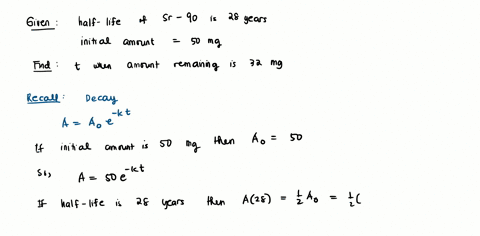 Given: half-life of Sr-90 is 28 years
initial amount = 50 mg
Find: t when amount remaining is 32 mg
Recall: Decay
A = A₀e^{-kt}
If initial amount is 50 mg then A₀ = 50
So, A = 50e^{-kt}
If half-life is 28 years then A(28) = ½A₀ = ½(